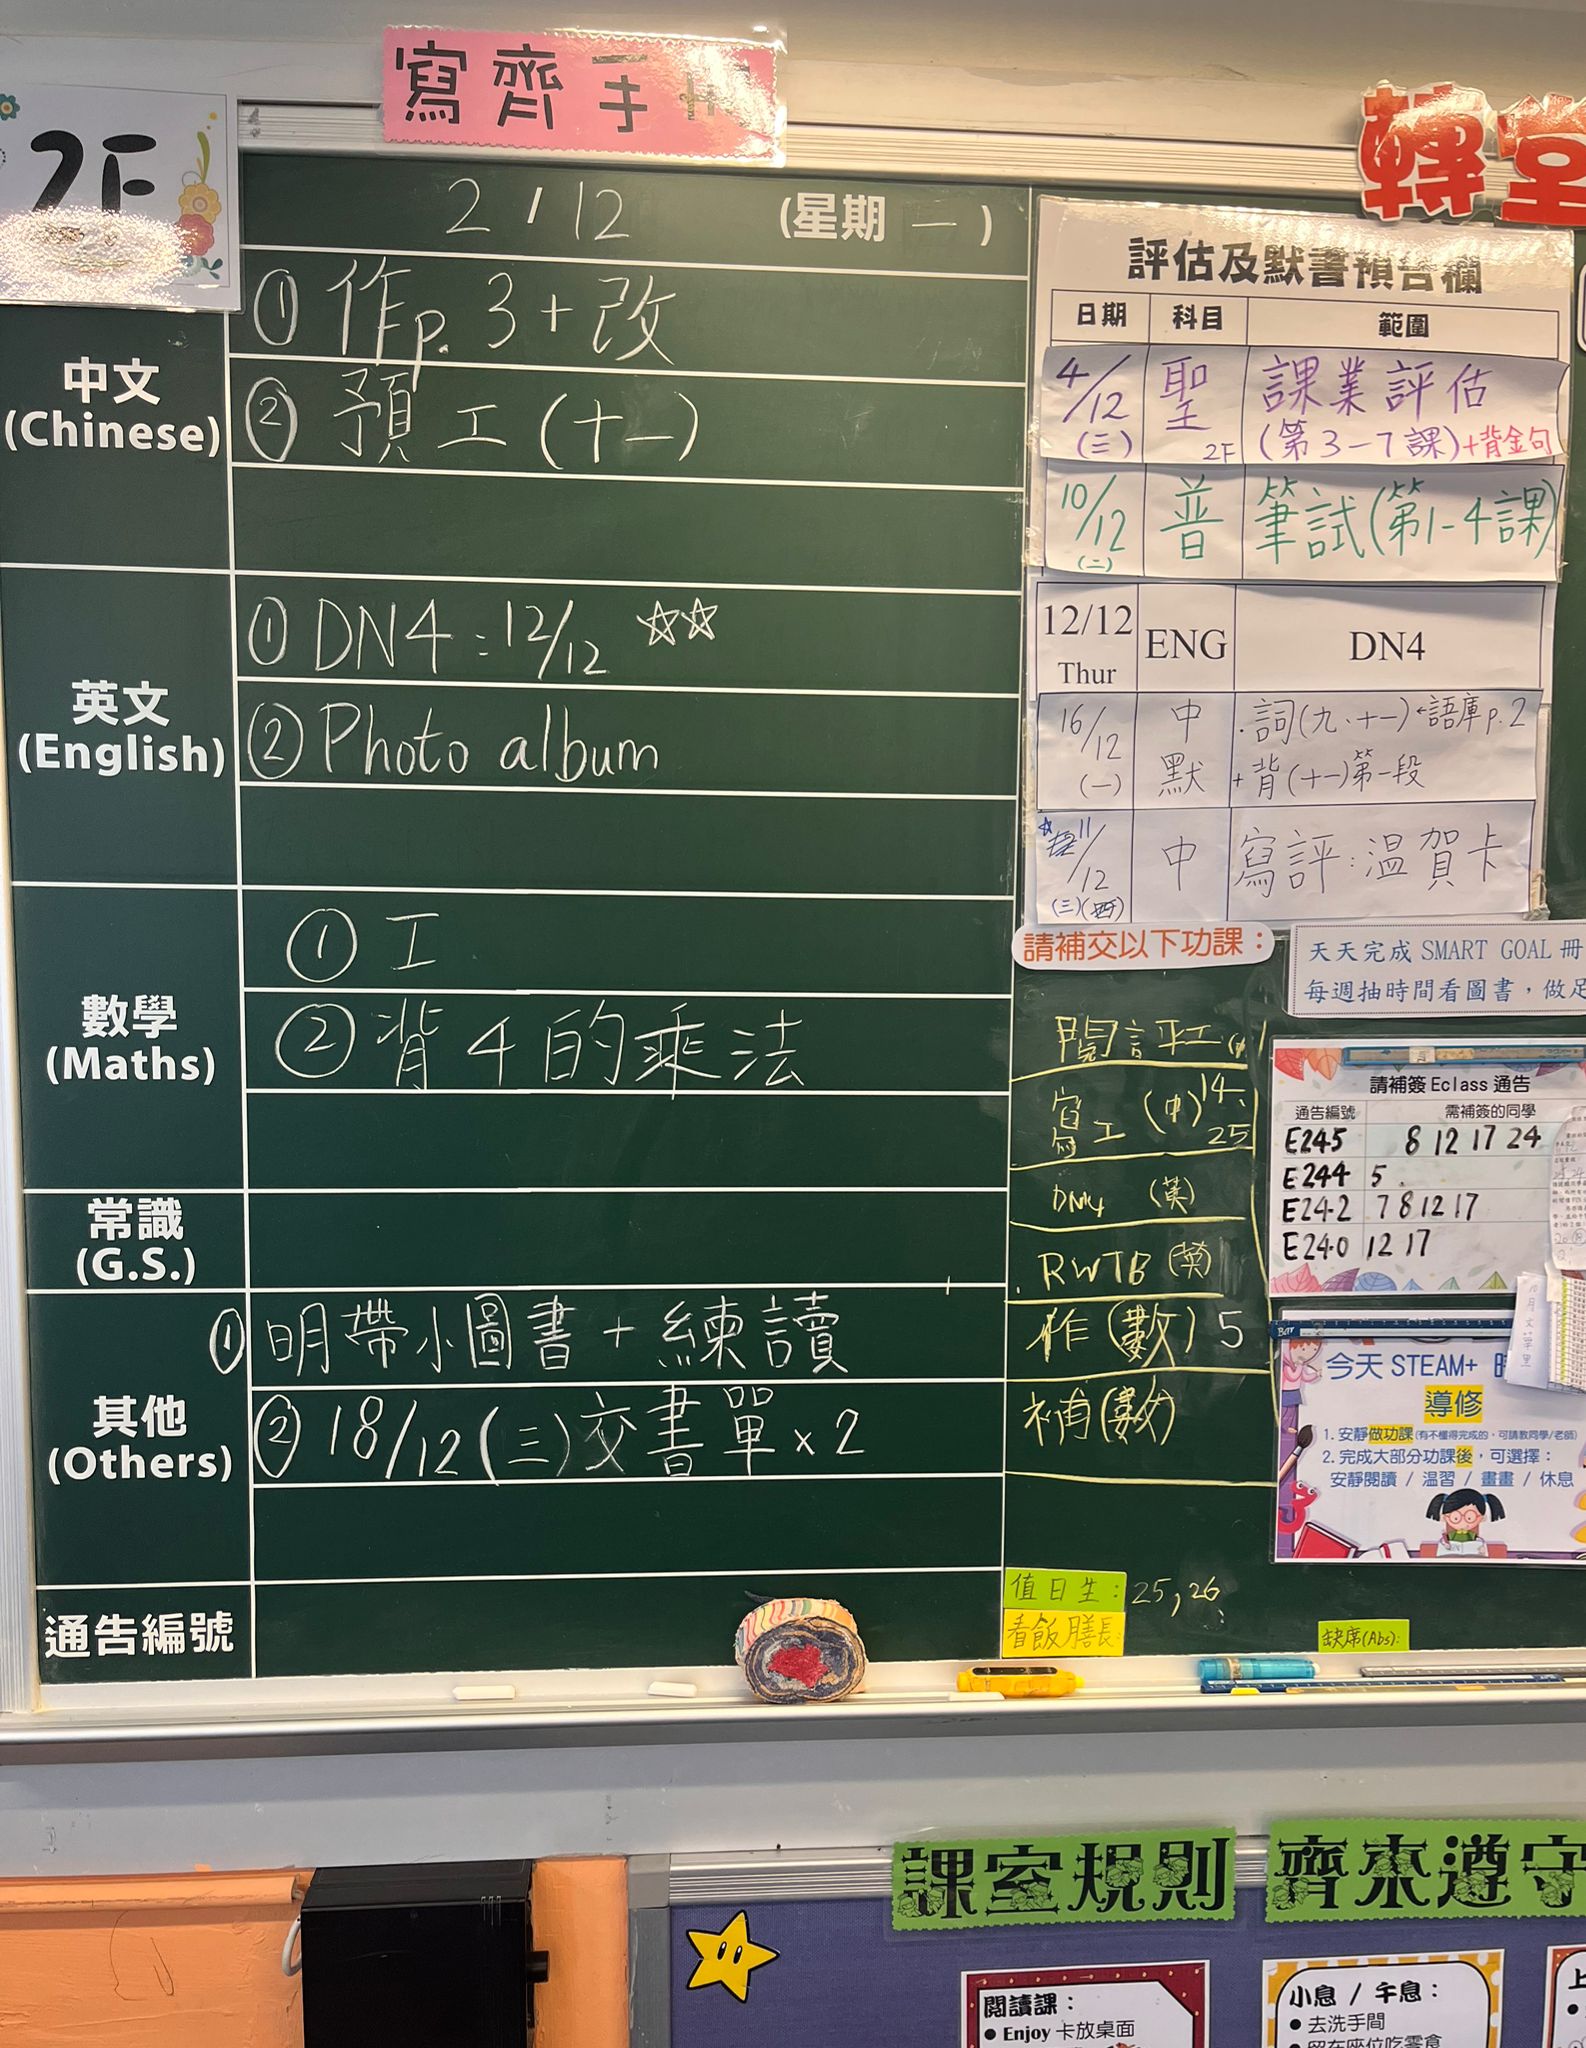 寫齊手
2F
2 / 12 (星期 一 )
中文
(Chinese)
① 作p. 3 + 改
② 預工(十一)
英文
(English)
① DN4 : 12/12 ☆☆
② Photo album
數學
(Maths)
① 工
② 背4的乘法
常識
(G.S.)
其他
(Others)
① 明帶小圖書 + 練讀
② 18/12(三)交書單x2
通告編號
轉堂
評估及默書預告欄
日期 科目 範圍
4/12 (三) 聖 2F 課業評估 (第3-7課)+背金句
10/12 (二) 普 筆試(第1-4課)
12/12 Thur ENG DN4
16/12 (一) 中默 .詞(九、十一)←語庫p.2
+背(十一)第一段
11/12 (三) 中 寫評:溫賀卡
請補交以下功課：
天天完成 SMART GOAL 冊
每週抽時間看圖書，做足
寫工(中) 14、25
DN4 (英)
RWTB (英)
作(數) 5
補(數)
請補簽 Eclass 通告
通告編號 需補簽的同學
E245 8 12 17 24
E244 5
E242 7 8 12 17
E240 12 17
今天 STEAM+
導修
1. 安靜做功課(有不懂得完成的，可請教同學/老師)
2. 完成大部分功課後，可選擇：
安靜閱讀 / 溫習 / 畫畫 / 休息
值日生： 25, 26
看飯膳長:
缺席(Abs):
課室規則
齊來遵守
閱讀課：
● Enjoy 卡放桌面
小息 / 午息：
● 去洗手間
● 留在座位吃零食